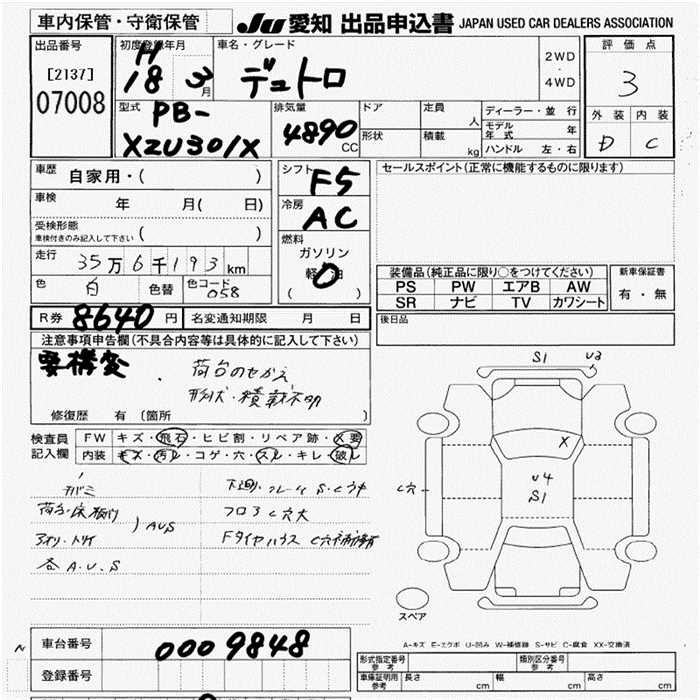 車内保管・守衛保管
JU 愛知 出品申込書 JAPAN USED CAR DEALERS ASSOCIATION
出品番号
[2137]
07008
初度登録年月
H
18 3月
車名・グレード
デュトロ
2WD
・
4WD
評価点
3
外装 内装
D C
型式 PB-
XZU301X
排気量
4890 CC
ドア
形状
定員 人
積載 kg
ディーラー・並行
モデル年式 年
ハンドル 左・右
車歴 自家用・( )
車検 年 月( 日)
受検形態
車検付きのみ記入して下さい ( )
走行 35万6千193km
色 白 色替 色コード 058
シフト F5
冷房 AC
燃料
ガソリン
軽油
( )
セールスポイント(正常に機能するものに限ります)
装備品(純正品に限り○をつけてください)
PS PW エアB AW
SR ナビ TV カワシート
新車保証書
有・無
R券 8640円 名変通知期限 月 日
後日品
注意事項申告欄(不具合内容等は具体的に記入して下さい)
要構変 ・ 荷台のせかえ
形状・積載不明
修復歴 有〔箇所 〕
検査員
記入欄
FW キズ・飛石・ヒビ割・リペア跡・X要
内装 キズ・汚レ・コゲ・穴・スレ・キレ・破レ
下廻・フレーム S・C中
荷台床板
フロアC穴大
AUS
各A.U.S
S1 U3
X
U4
S1
C穴
スペア
A-キズ E-エクボ U-凹み W-補修跡 S-サビ C-腐食 XX-交換済
車台番号 0009848
登録番号
形式指定番号
参考
類別区分番号
参考
車庫証明用
参考
長さ cm 幅 cm 高さ cm